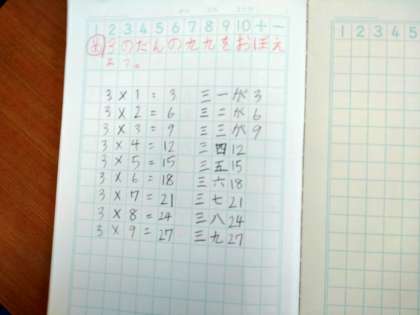 1 2 3 4 5 6 7 8 9 10 + −
3のだんの九九をおぼえ
よう。
3 × 1 = 3 三一が3
3 × 2 = 6 三二が6
3 × 3 = 9 三三が9
3 × 4 = 12 三四12
3 × 5 = 15 三五15
3 × 6 = 18 三六18
3 × 7 = 21 三七21
3 × 8 = 24 三八24
3 × 9 = 27 三九27
1 2 3 4 5